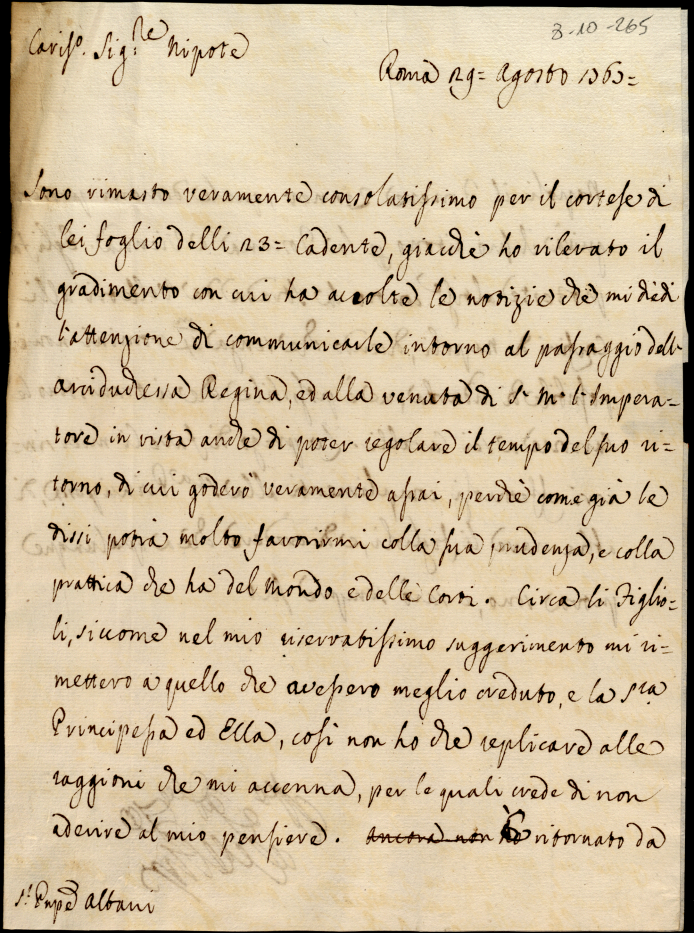 3-10-265
Cariss.o Sig.re Nipote
Roma 29= Agosto 1765=
Sono rimasto veramente consolatissimo per il cortese di
lei foglio delli 23= Cadente, giacchè ho rilevato il
gradimento con cui ha accolte le notizie che mi diedi
l'attenzione di communicarle intorno al passaggio dell'
arciduchessa Regina, ed alla venuta di S. M. l'Impera=
tore in vista anche di poter regolare il tempo del suo ri=
torno, di cui goderò veramente assai, perchè come già le
dissi potrà molto favorirmi colla sua prudenza, e colla
prattica che ha del Mondo e delle Corti. Circa li Figlio=
li, siccome nel mio riservatissimo suggerimento mi ri=
mettevo a quello che avessero meglio creduto, e la S.ra
Principessa ed Ella, così non ho che replicare alle
raggioni che mi accenna, per le quali crede di non
aderire al mio pensiere. Ancora non è ritornato da
S.r Pnpe Albani